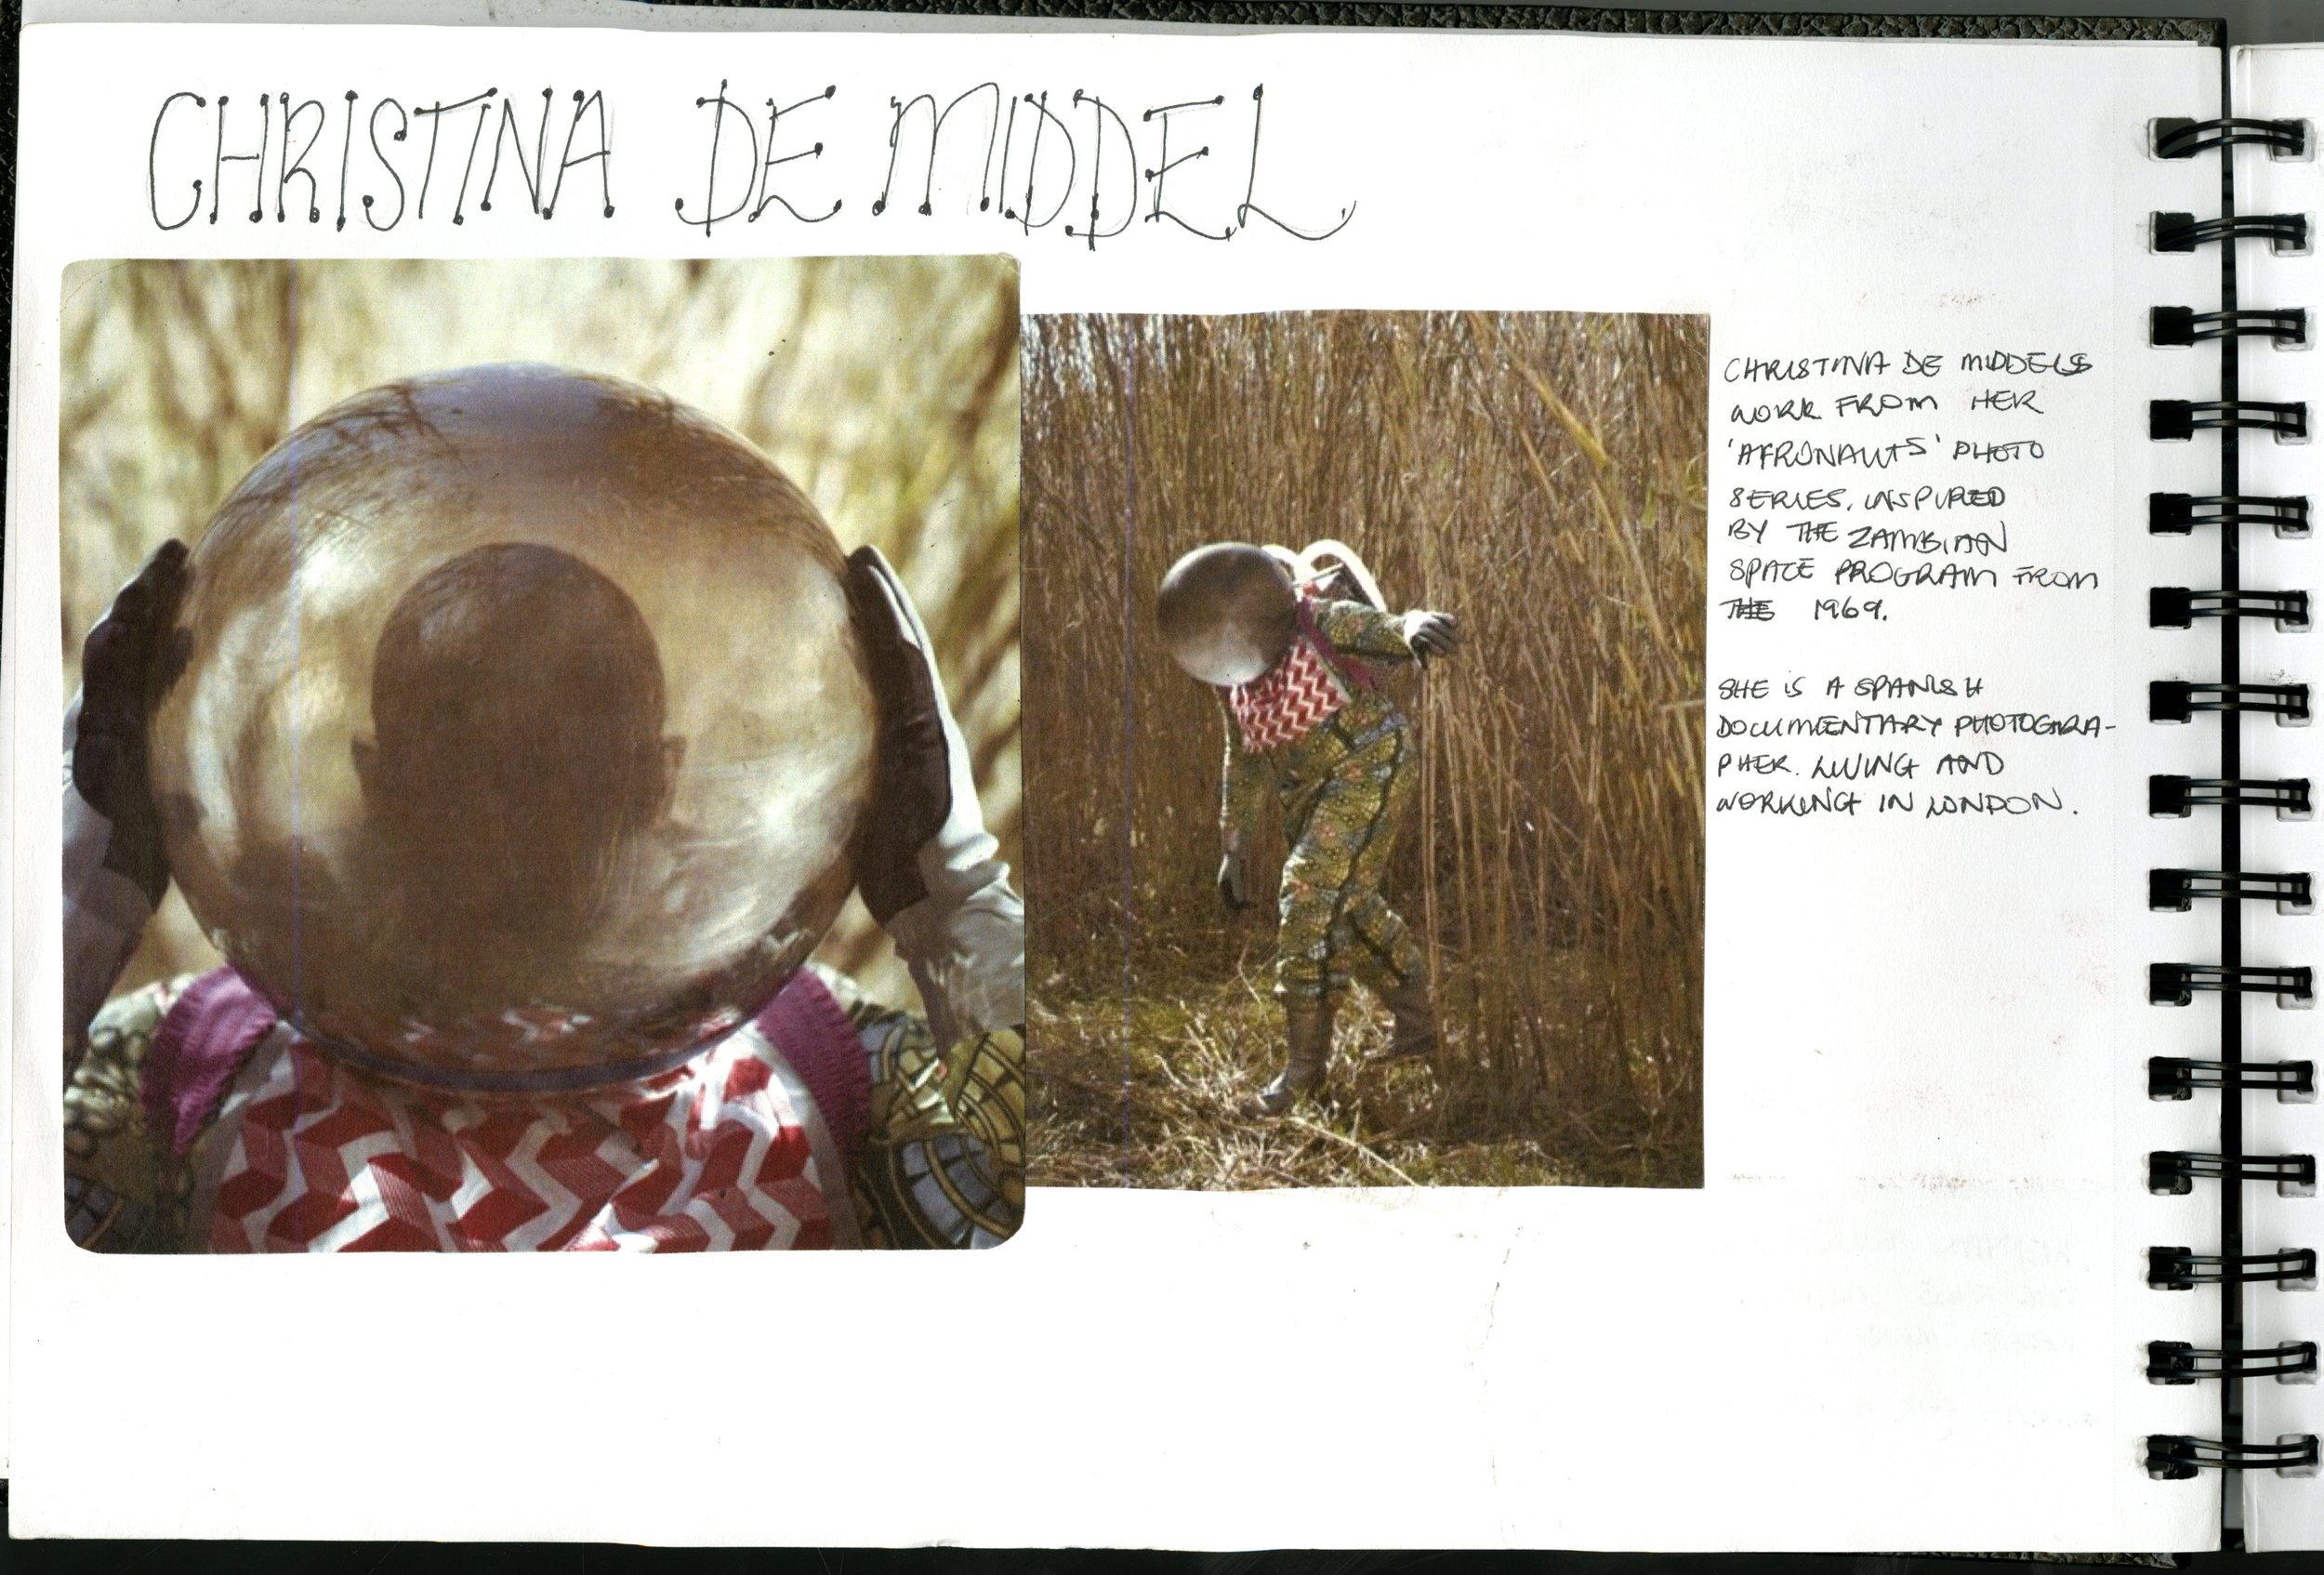 CHRISTINA DE MIDDEL
CHRISTINA DE MIDDELS
WORK FROM HER
'AFRONAUTS' PHOTO
SERIES. INSPIRED
BY THE ZAMBIAN
SPACE PROGRAM FROM
THE 1969.
SHE IS A SPANISH
DOCUMENTARY PHOTOGRA-
PHER. LIVING AND
WORKING IN LONDON.